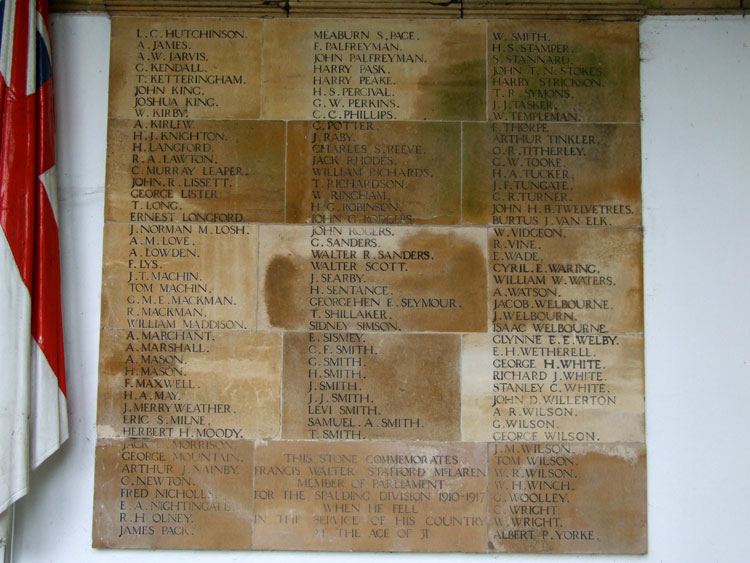 L. C. HUTCHINSON.
A. JAMES.
A. W. JARVIS.
G. KENDALL.
T. KETTERINGHAM.
JOHN KING.
JOSHUA KING.
W. KIRBY.
A. KIRLEW.
H. J. KNIGHTON.
H. LANGFORD.
R. A. LAWTON.
C. MURRAY LEAPER.
JOHN. R. LISSETT.
GEORGE LISTER.
T. LONG.
ERNEST LONGFORD.
J. NORMAN M. LOSH.
A. M. LOVE.
A. LOWDEN.
F. LYS.
J. T. MACHIN.
TOM MACHIN.
G. M. E. MACKMAN.
R. MACKMAN.
WILLIAM MADDISON.
A. MARCHANT.
A. MARSHALL.
A. MASON.
H. MASON.
F. MAXWELL.
H. A. MAY.
J. MERRYWEATHER.
ERIC S. MILNE.
HERBERT H. MOODY.
JACK C. MORRISON.
GEORGE MOUNTAIN.
ARTHUR J. NAINBY.
C. NEWTON.
FRED NICHOLLS.
E. A. NIGHTINGALE.
R. H. OLNEY.
JAMES PACK.
MEABURN S. PAGE.
F. PALFREYMAN.
JOHN PALFREYMAN.
HARRY PASK.
HARRY PEAKE.
H. S. PERCIVAL.
G. W. PERKINS.
C. C. PHILLIPS.
C. POTTER.
J. RABY.
CHARLES S. REEVE.
JACK RHODES.
WILLIAM RICHARDS.
T. RICHARDSON.
W. RINGHAM.
H. G. ROBINSON.
JOHN G. RODGERS.
JOHN ROGERS.
G. SANDERS.
WALTER R. SANDERS.
WALTER SCOTT.
J. SEARBY.
H. SENTANCE.
GEORGE HEN E. SEYMOUR.
T. SHILLAKER.
SIDNEY SIMSON.
E. SISMEY.
C. F. SMITH.
G. SMITH.
H. SMITH.
J. SMITH.
J. J. SMITH.
LEVI SMITH.
SAMUEL. A. SMITH.
T. SMITH.
THIS STONE COMMEMORATES
FRANCIS WALTER STAFFORD McLAREN
MEMBER OF PARLIAMENT
FOR THE SPALDING DIVISION 1910-1917
WHEN HE FELL
IN THE SERVICE OF HIS COUNTRY
AT THE AGE OF 31
W. SMITH.
H. S. STAMPER.
S. STANNARD.
JOHN T. N. STOKES.
HARRY STRICKSON.
T. R. SYMONS.
J. J. TASKER.
W. TEMPLEMAN.
F. THORPE.
ARTHUR TINKLER.
O. R. TITHERLEY.
G. W. TOOKE.
H. A. TUCKER.
J. F. TUNGATE.
G. R. TURNER.
JOHN H. B. TWELVETREES.
BURTUS J. VAN ELK.
W. VIDGEON.
R. VINE.
E. WADE.
CYRIL. E. WARING.
WILLIAM W. WATERS.
A. WATSON.
JACOB WELBOURNE.
J. WELBOURN.
ISAAC WELBOURNE.
GLYNNE E. E. WELBY.
E. H. WETHERELL.
GEORGE H. WHITE.
RICHARD J. WHITE.
STANLEY C. WHITE.
JOHN D. WILLERTON
A. R. WILSON.
G. WILSON.
GEORGE WILSON.
J. M. WILSON.
TOM WILSON.
W. R. WILSON.
W. H. WINCH.
G. WOOLLEY.
C. WRIGHT
W. WRIGHT.
ALBERT P. YORKE.